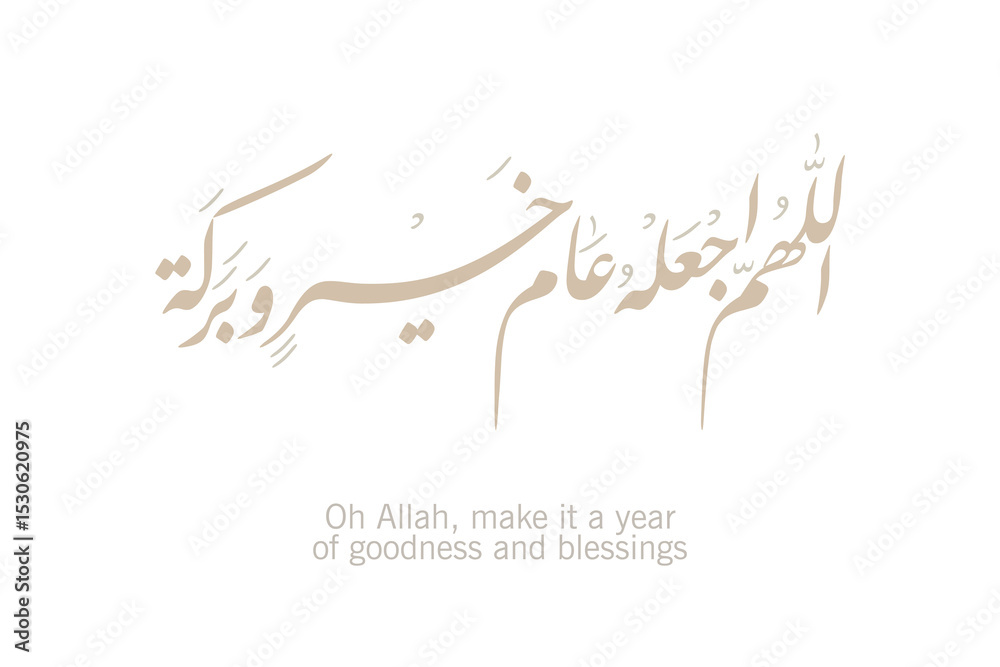 اللّٰهُمَّ اجْعَلْهُ عَام خَيْرٍ وَبَرَكَة
Oh Allah, make it a year
of goodness and blessings
Adobe Stock | #1530620975